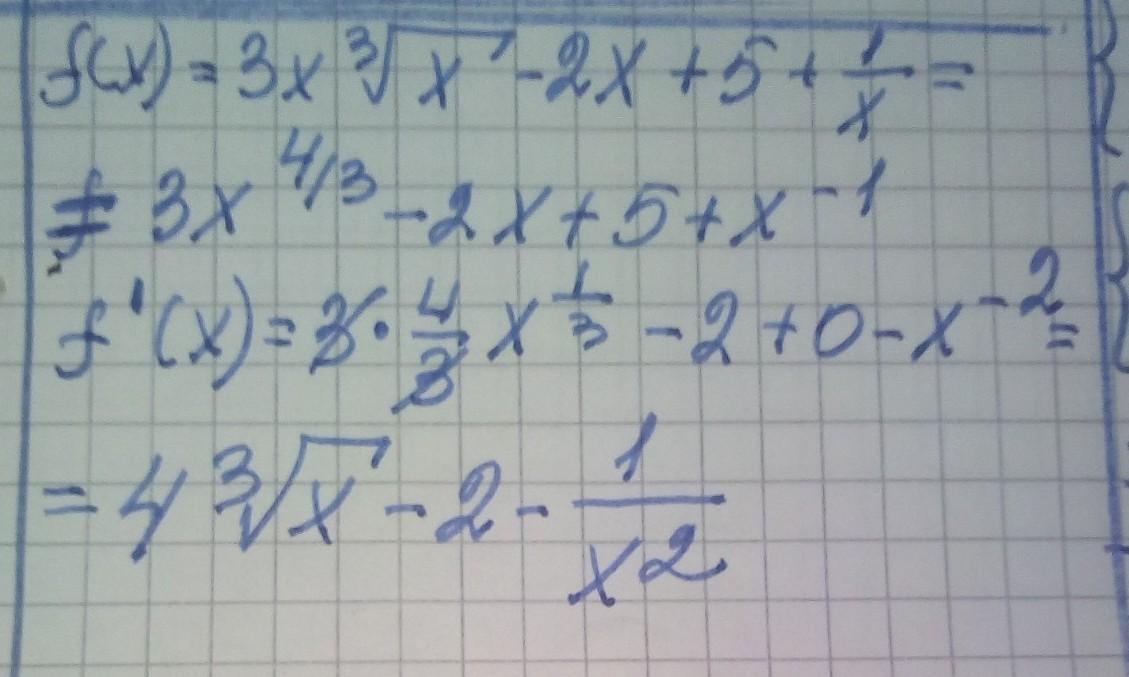 f(x) = 3x ∛x - 2x + 5 + 1/x =
= 3x^4/3 - 2x + 5 + x^-1
f'(x) = 3 · 4/3 x^1/3 - 2 + 0 - x^-2 =
= 4 ∛x - 2 - 1/x^2